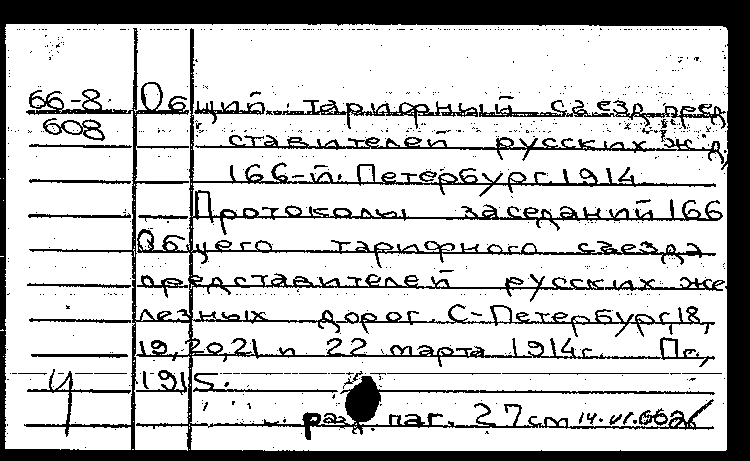 66-8 Общий тарифный съезд пред
608 ставителей русских ж.д,
166-й. Петербург. 1914
Протоколы заседаний 166
Общего тарифного съезда
представителей русских же
лезных дорог. С-Петербург, 18,
19, 20, 21 и 22 марта 1914г. Пг.,
1915.
разд. паг. 27см